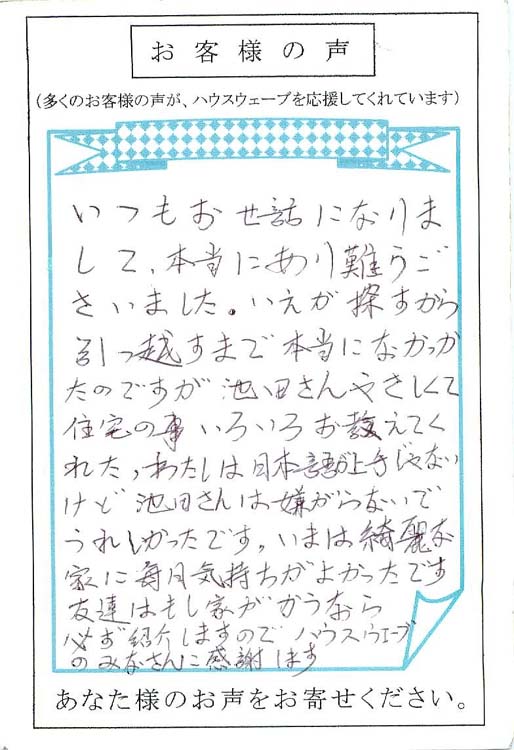 お客様の声
（多くのお客様の声が、ハウスウェーブを応援してくれています）
いつもお世話になりま
して、本当にあり難うご
さいました。いえが探すがら
引っ越すまで本当になかっか
たのですが池田さんやさしくて
住宅の事いろいろお教えてく
れた、わたしは日本語が上手じゃない
けど池田さんは嫌がらないで
うれしかったです。いまは綺麗な
家に毎月気持ちがよかったです
友達はもし家ががうなら
必ず紹介しますのでハウスウエーブ
のみなさんに感謝します
あなた様のお声をお寄せください。